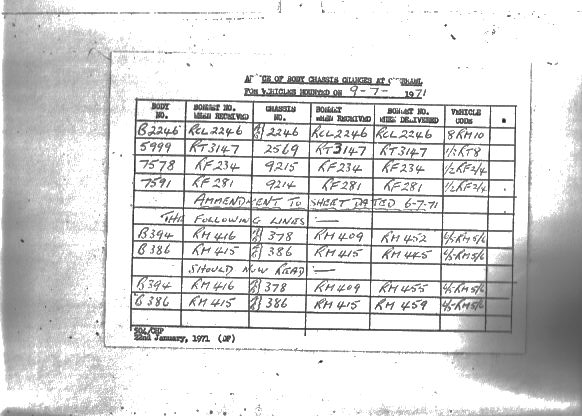 OF BODY CHASSIS CHANGES AT
FOR VEHICLES MOUNTED ON 9-7- 1971
BODY NO. BONNET NO. WHEN RECEIVED CHASSIS NO. BONNET WHEN RECEIVED BONNET NO. WHEN DELIVERED VEHICLE CODE
B2246 RCL2246 2246 RCL2246 RCL2246 8RM10
5999 RT3147 2569 RT3147 RT3147 1/3RT8
7578 RF234 9215 RF234 RF234 1/2RF2/4
7591 RF281 9214 RF281 RF281 1/2RF2/4
AMMENDMENT TO SHEET DATED 6-7-71
THE FOLLOWING LINES :—
B394 RM416 378 RM409 RM452 4/5RM5/6
B386 RM415 386 RM415 RM445 4/5RM5/6
SHOULD NOW READ :—
B394 RM416 378 RM409 RM455 4/5RM5/6
B386 RM415 386 RM415 RM459 4/5RM5/6
22nd January, 1971 (OF)